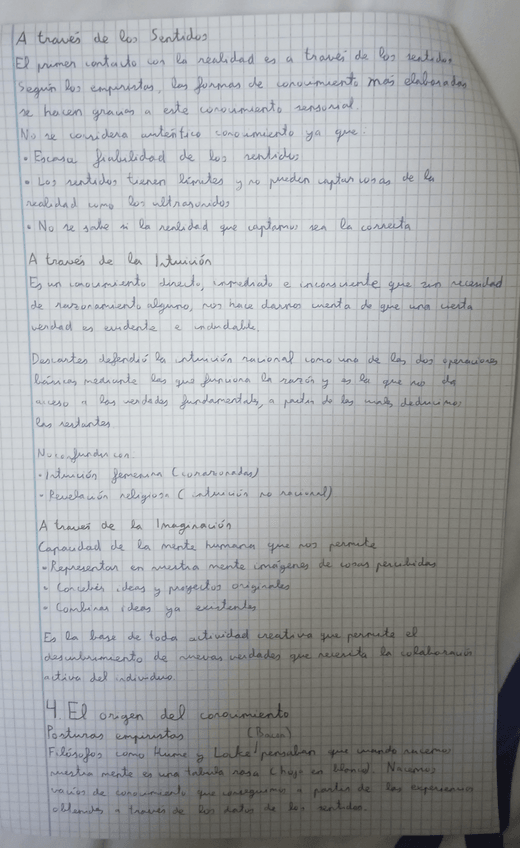 A través de los Sentidos
El primer contacto con la realidad es a través de los sentidos.
Según los empiristas, las formas de conocimiento más elaboradas
se hacen gracias a este conocimiento sensorial.
No se considera auténtico conocimiento ya que:
• Escasa fiabilidad de los sentidos
• Los sentidos tienen límites y no pueden captar cosas de la
realidad como los ultrasonidos
• No se sabe si la realidad que captamos sea la correcta
A través de la Intuición
Es un conocimiento directo, inmediato e inconsciente que sin necesidad
de razonamiento alguno, nos hace darnos cuenta de que una cierta
verdad es evidente e indudable.
Descartes defendió la intuición racional como una de las dos operaciones
básicas mediante las que funciona la razón y es la que nos da
acceso a las verdades fundamentales, a partir de las cuales deducimos
las restantes.
No confundir con:
• Intuición femenina (corazonadas)
• Revelación religiosa (intuición no racional)
A través de la Imaginación
Capacidad de la mente humana que nos permite
• Representar en nuestra mente imágenes de cosas percibidas
• Concebir ideas y proyectos originales
• Combinar ideas ya existentes
Es la base de toda actividad creativa que permite el
descubrimiento de nuevas verdades que necesita la colaboración
activa del individuo.
4. El origen del conocimiento
Posturas empiristas (Bacon)
Filósofos como Hume y Locke pensaban que cuando nacemos
nuestra mente es una tabula rasa (hoja en blanco). Nacemos
vacíos de conocimiento que conseguimos a partir de las experiencias
obtenidas a través de los datos de los sentidos.